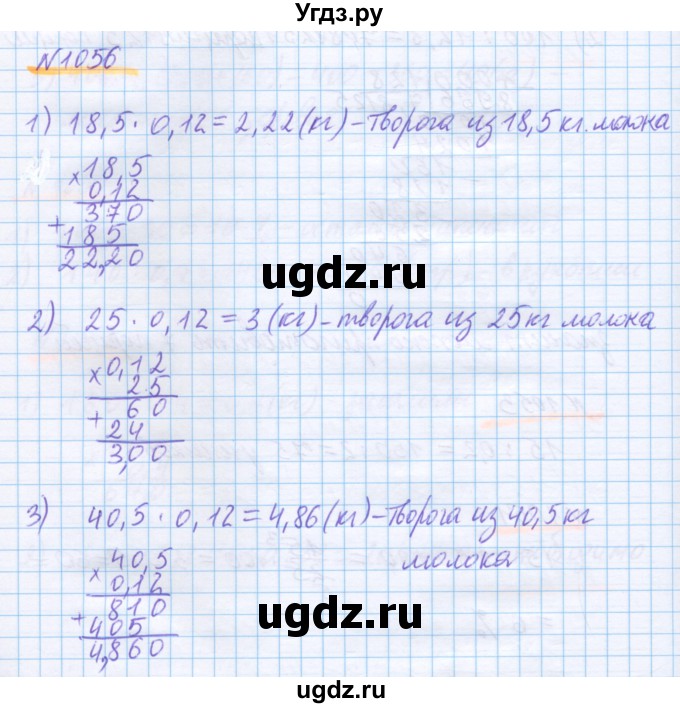 Угдз.ру
№1056
1) 18,5 · 0,12 = 2,22 (кг) – творога из 18,5 кг. молока
× 18,5
0,12
370
+
185
22,20
ugdz.ru
2) 25 · 0,12 = 3 (кг) – творога из 25 кг молока
× 0,12
25
+ 60
24
3,00
3) 40,5 · 0,12 = 4,86 (кг) – творога из 40,5 кг
молока
× 40,5
0,12
810
+ 405
4,860
ugdz.ru
ugdz.ru